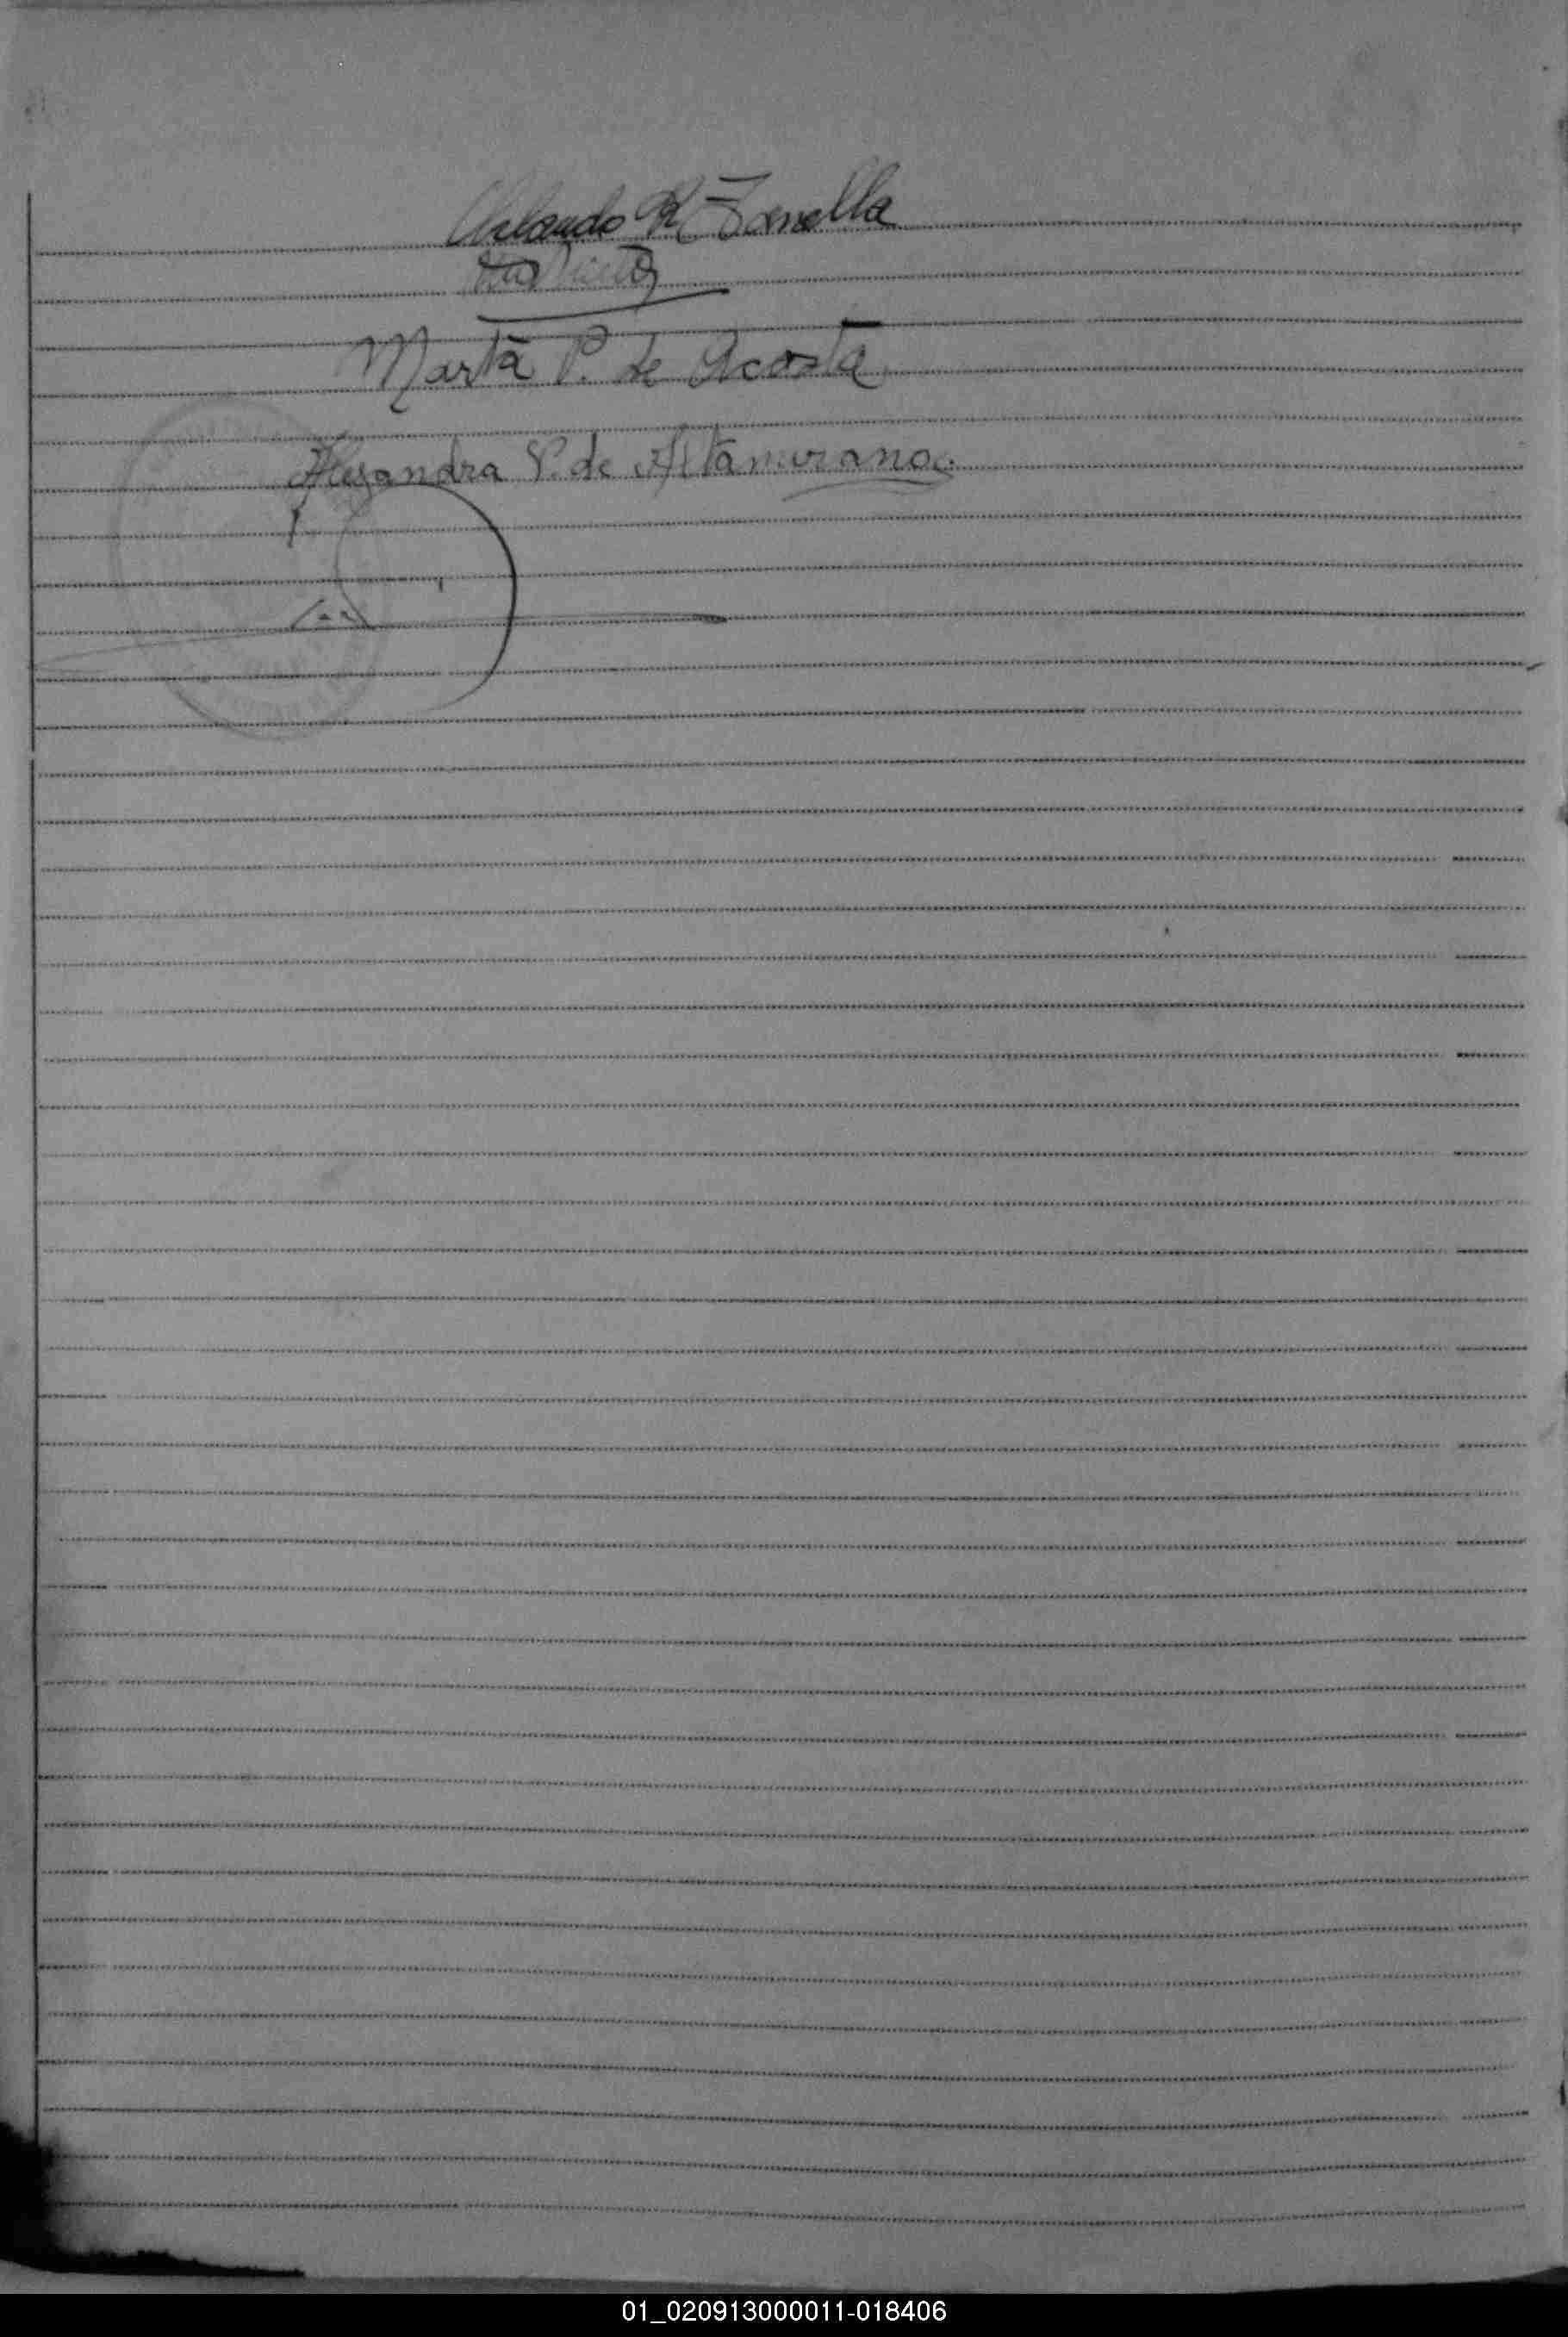 Orlando R. Zanella
Marta P. de Acosta
Alejandra P. de Altamirano.
01_020913000011-018406